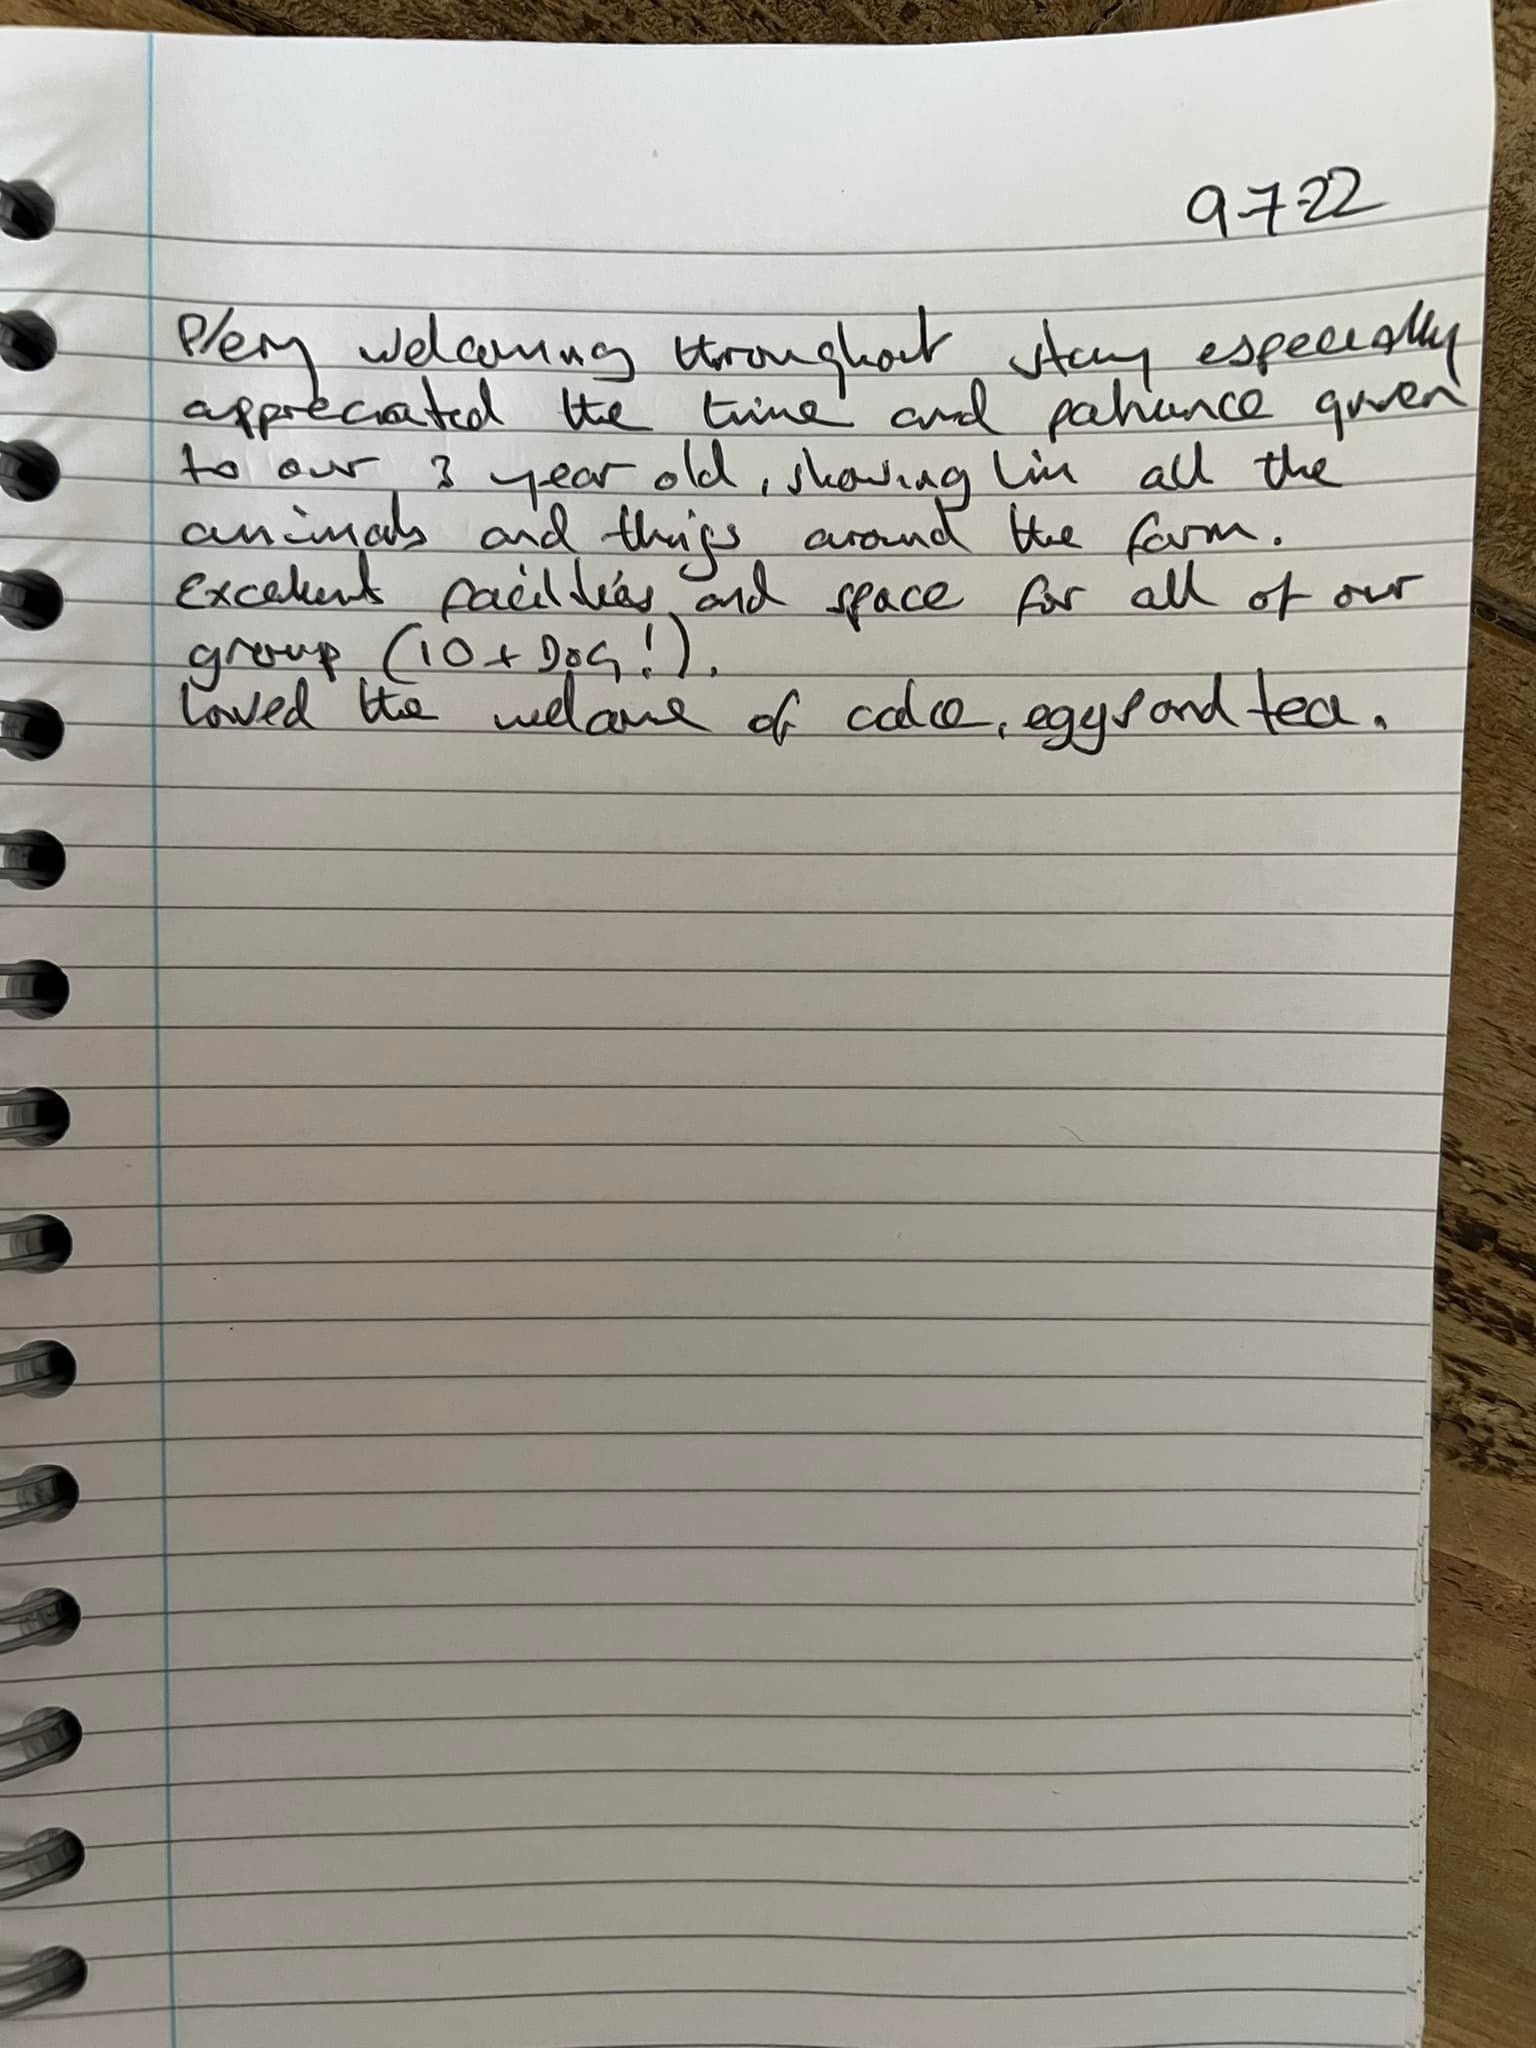 9-7-22
Very welcoming throughout stay especially
appreciated the time and patience given
to our 3 year old, showing him all the
animals and things around the farm.
Excellent facilities and space for all of our
group (10 + DOG!).
Loved the welcome of cake, eggs and tea.